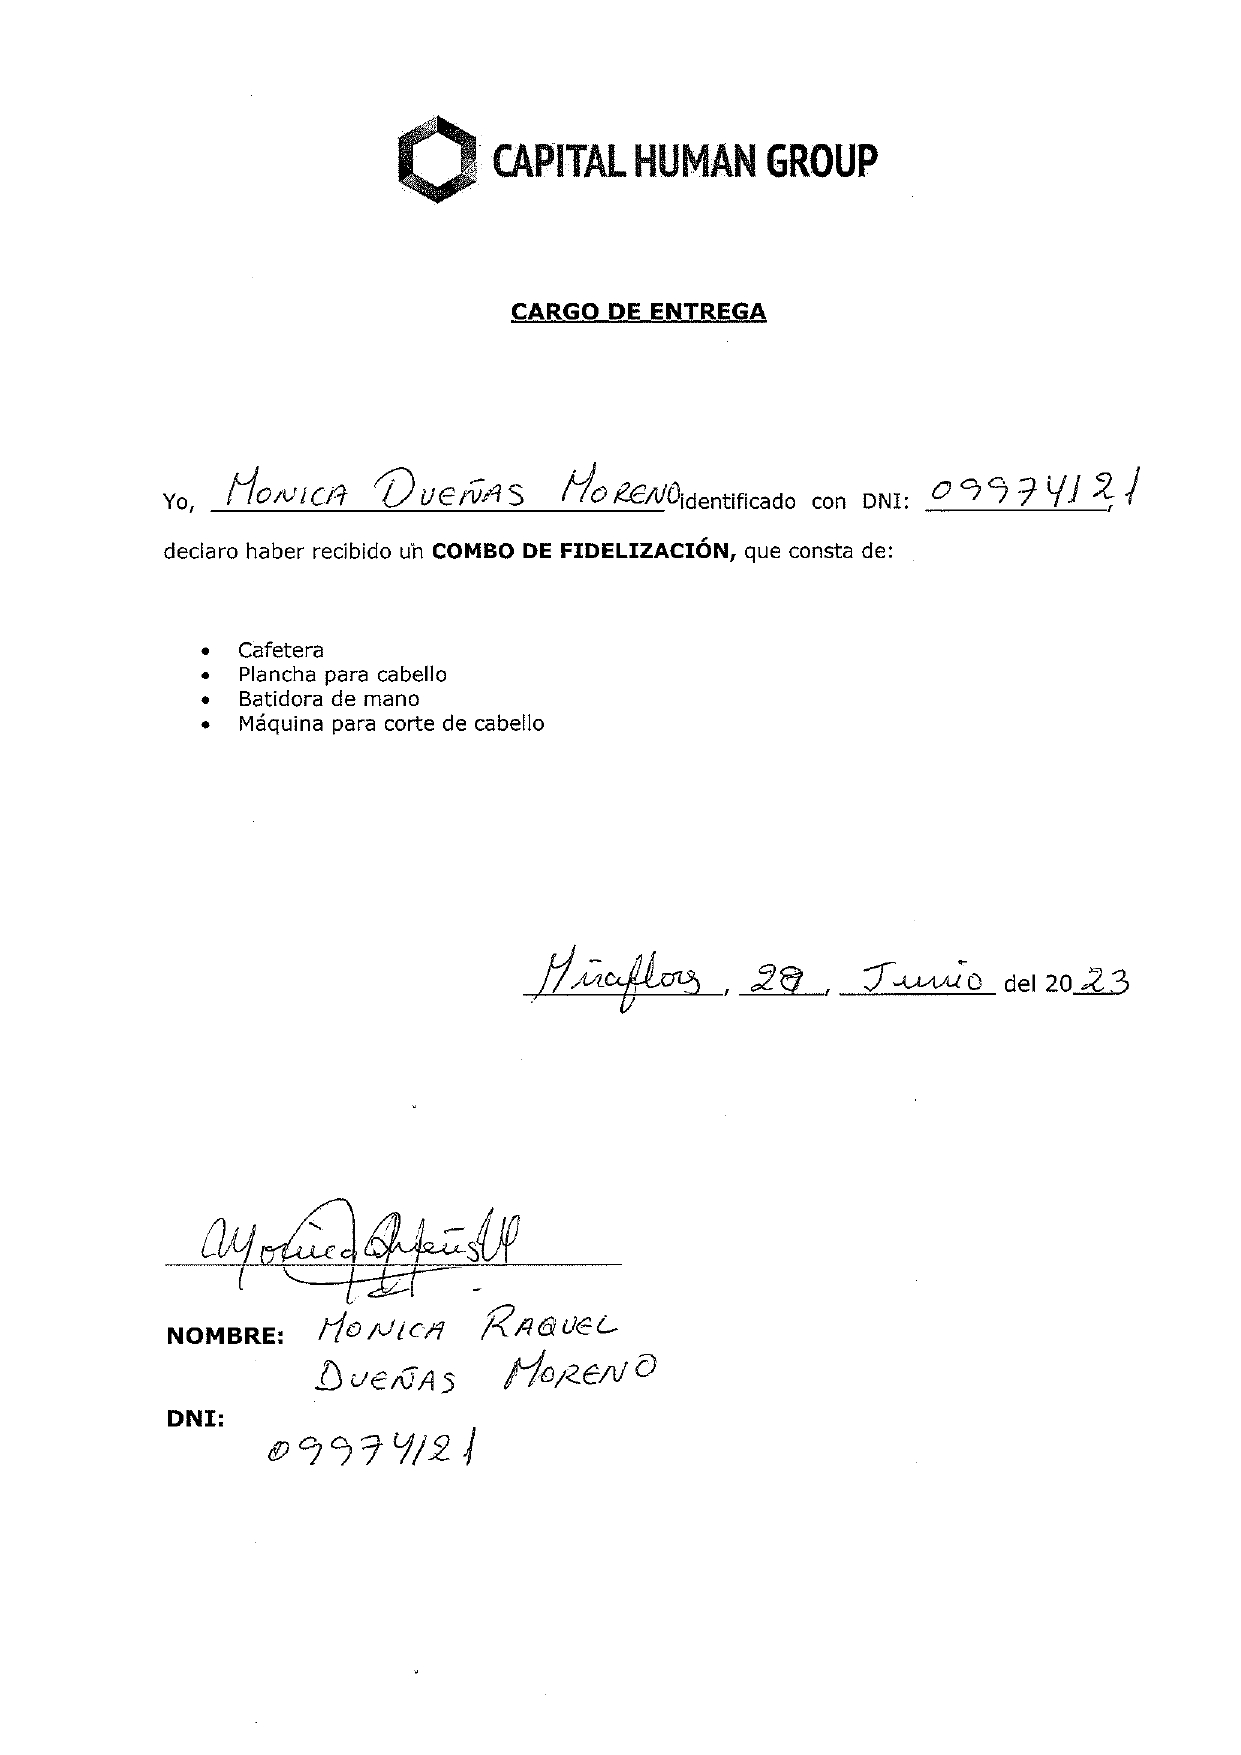 CAPITAL HUMAN GROUP
CARGO DE ENTREGA
Yo, MONICA DUEÑAS MORENO identificado con DNI: 09974121
declaro haber recibido un COMBO DE FIDELIZACIÓN, que consta de:
• Cafetera
• Plancha para cabello
• Batidora de mano
• Máquina para corte de cabello
Miraflores, 28, Junio del 2023
NOMBRE: MONICA RAQUEL
DUEÑAS MORENO
DNI:
09974121